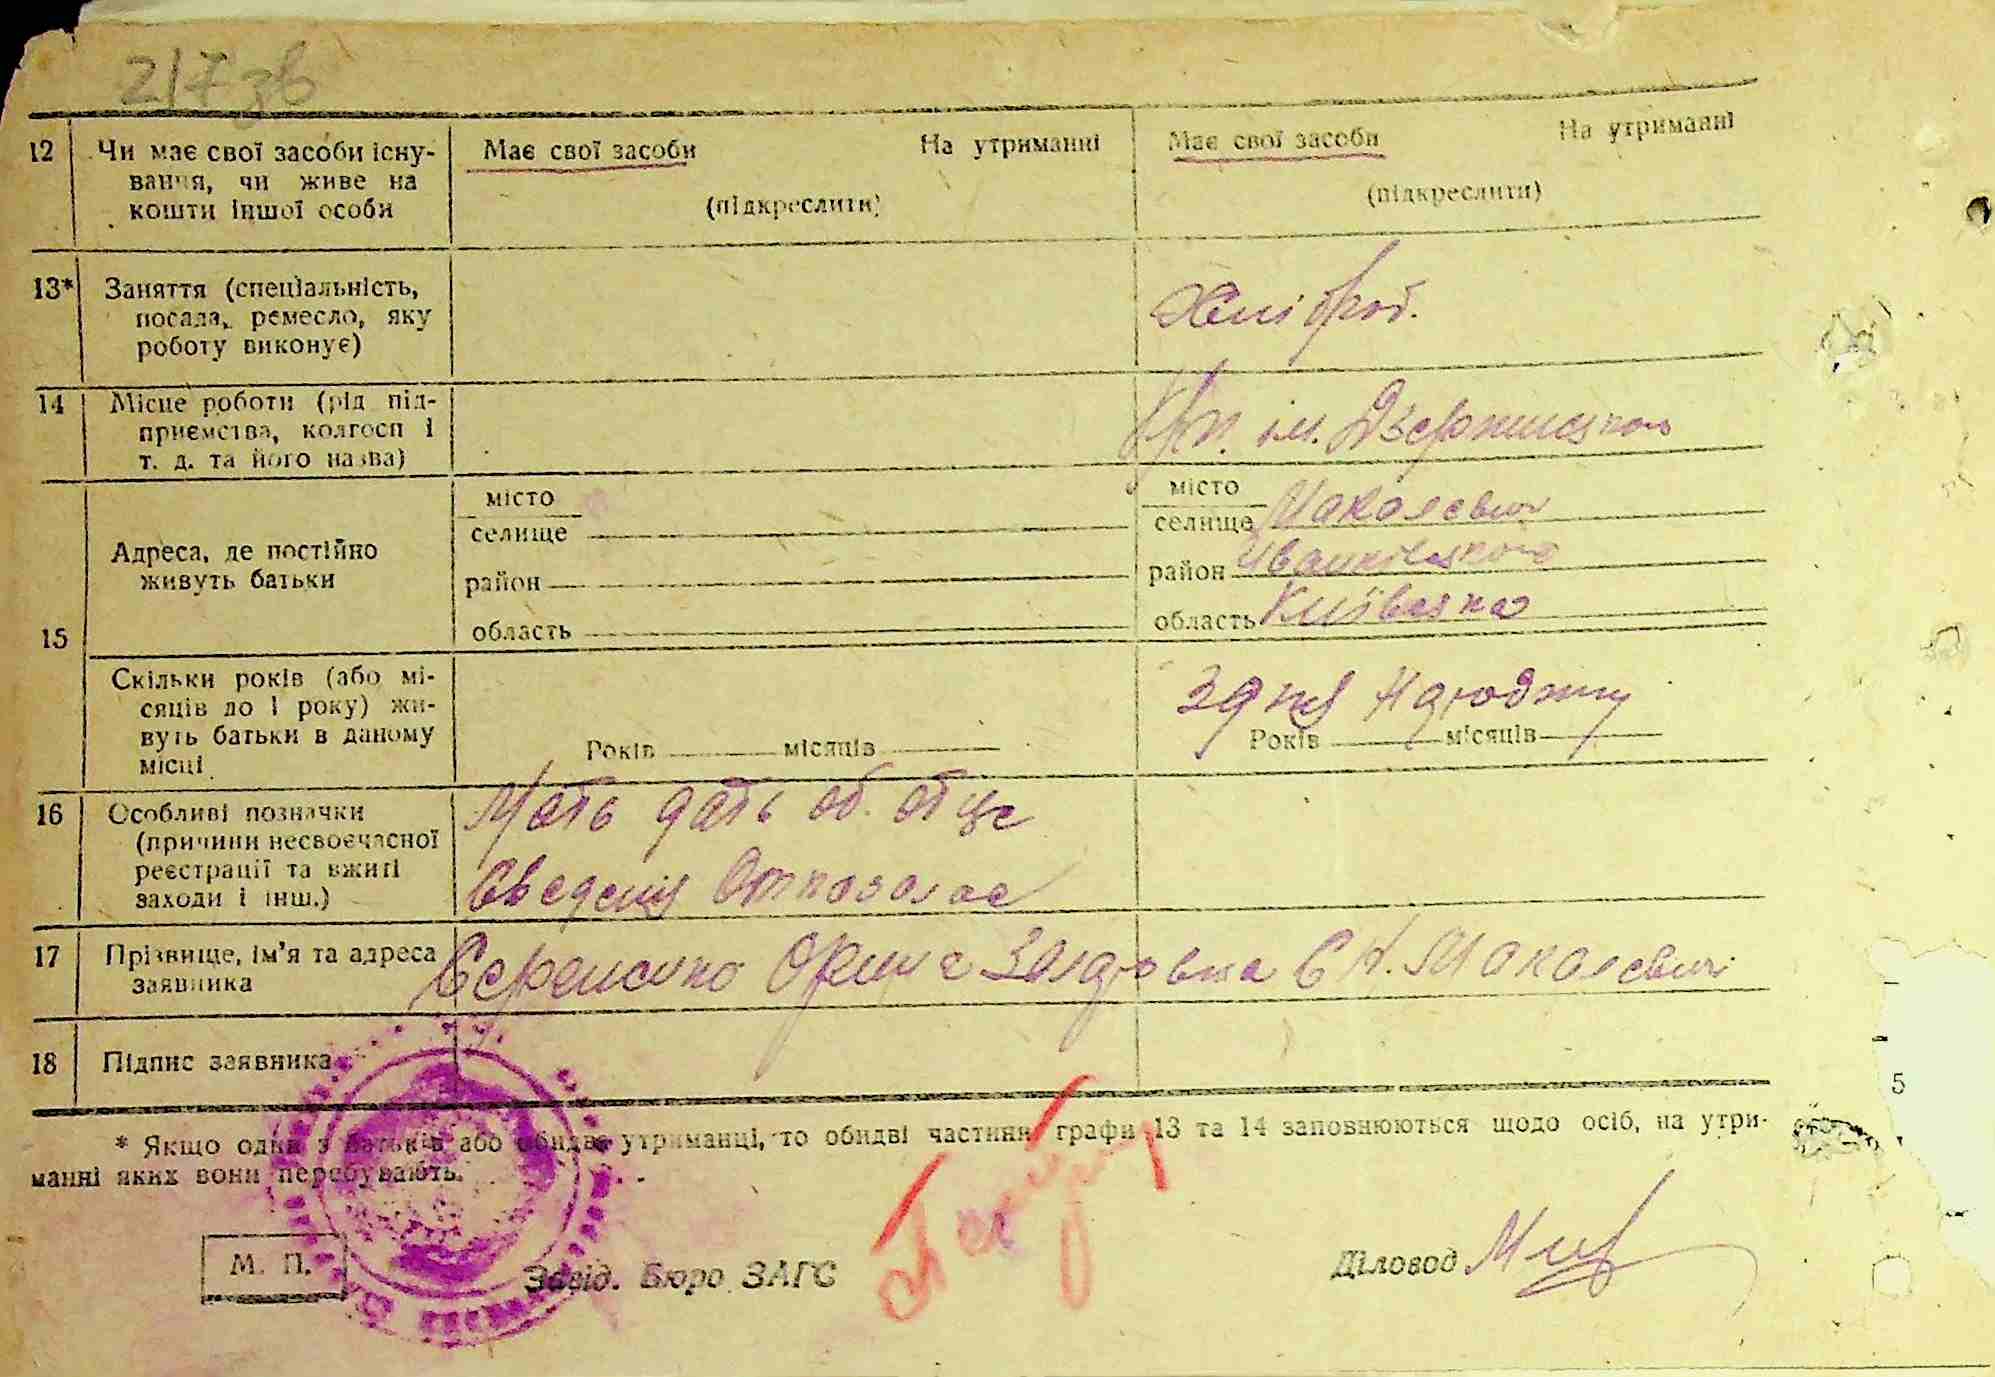 217зв
12 Чи має свої засоби існу- Має свої засоби На утриманні Має свої засоби На утриманні
вання, чи живе на
кошти іншої особи (підкреслити) (підкреслити)
13* Заняття (спеціальність,
посада, ремесло, яку Хлібороб.
роботу виконує)
14 Місце роботи (рід під-
приємства, колгосп і им. Дзержинского
т. д. та його назва)
місто місто
селище селище Макалевич
Адреса, де постійно
живуть батьки район район Иванківского
15 область область Київска
Скільки років (або мі-
сяців до 1 року) жи- З дня
вуть батьки в даному Років місяців Років місяців
місці
16 Особливі позначки Мать дать об. отце
(причини несвоєчасної
реєстрації та вжиті сведения отказалас
заходи і інш.)
17 Прізвище, ім'я та адреса
заявника Орина С Макалевичі
18 Підпис заявника
* Якщо один з батьків або обидва утриманці, то обидві частини графи 13 та 14 заповнюються щодо осіб, на утри-
манні яких вони перебувають.
5
М. П. Завід. Бюро ЗАГС Діловод